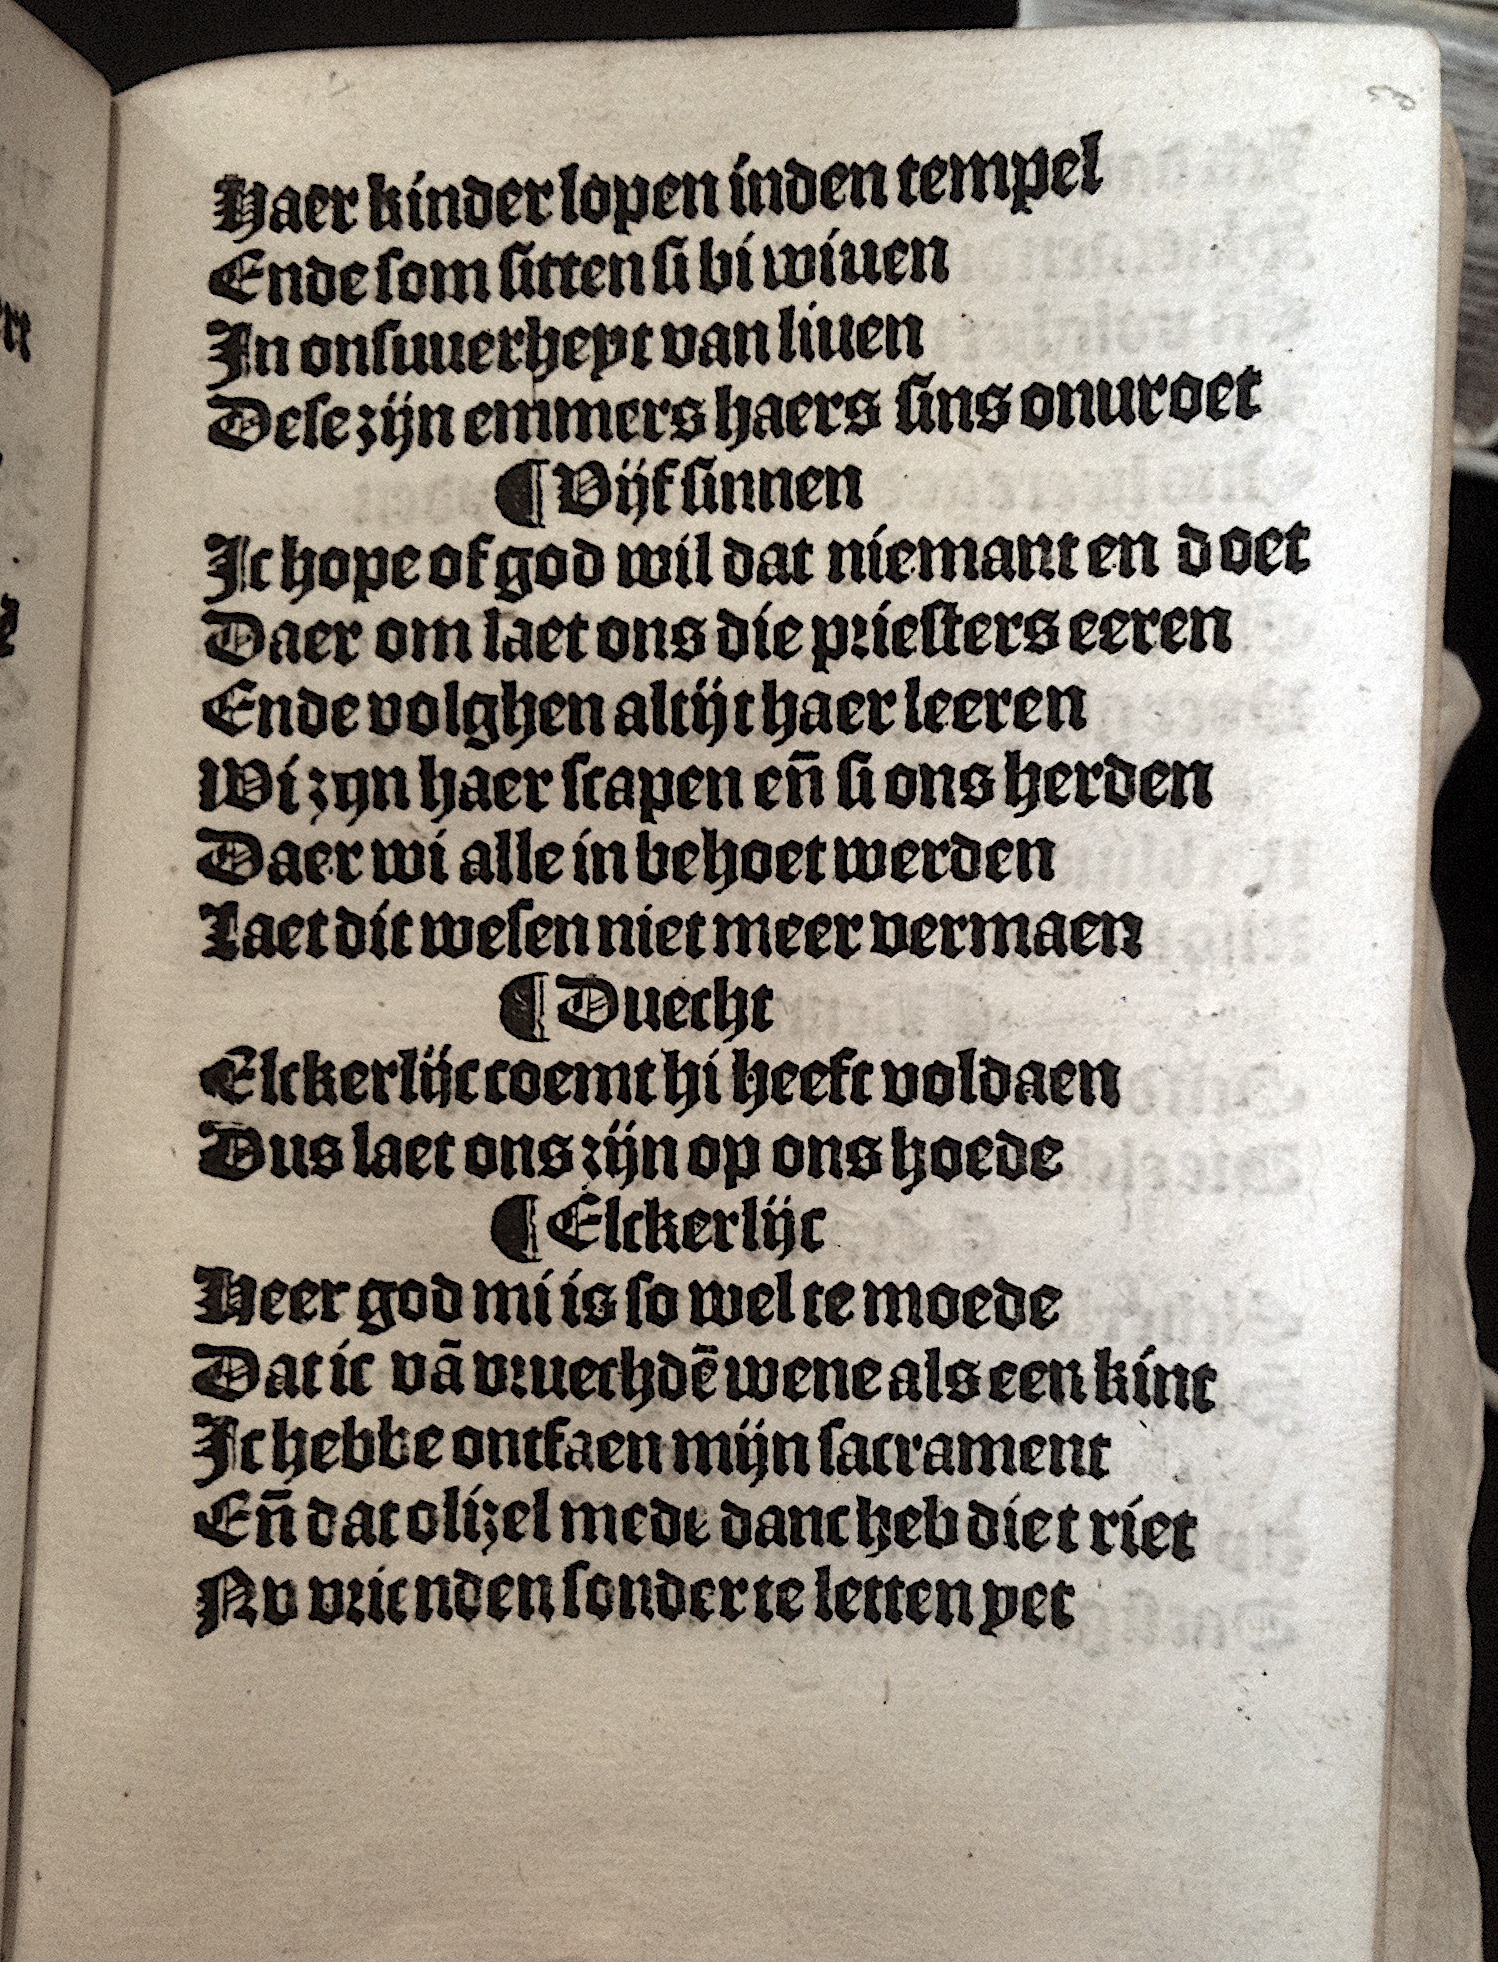 Haer kinder lopen inden tempel
Ende som sitten si bi wiuen
In onsuuerheyt van liuen
Dese zijn emmers haers sins onuroet
¶ Vijf sinnen
Ic hope of god wil dat niemant en doet
Daer om laet ons die priesters eeren
Ende volghen altijt haer leeren
Wi zijn haer scapen en̄ si ons herden
Daer wi alle in behoet werden
Laet dit wesen niet meer vermaen
¶ Duecht
Elckerlijc coemt hi heeft voldaen
Dus laet ons zijn op ons hoede
¶ Elckerlijc
Heer god mi is so wel te moede
Dat ic vā vruechdē wene als een kint
Ic hebbe ontfaen mijn sacrament
En̄ dat olizel mede danc heb diet riet
Nv vrienden sonder te letten yet